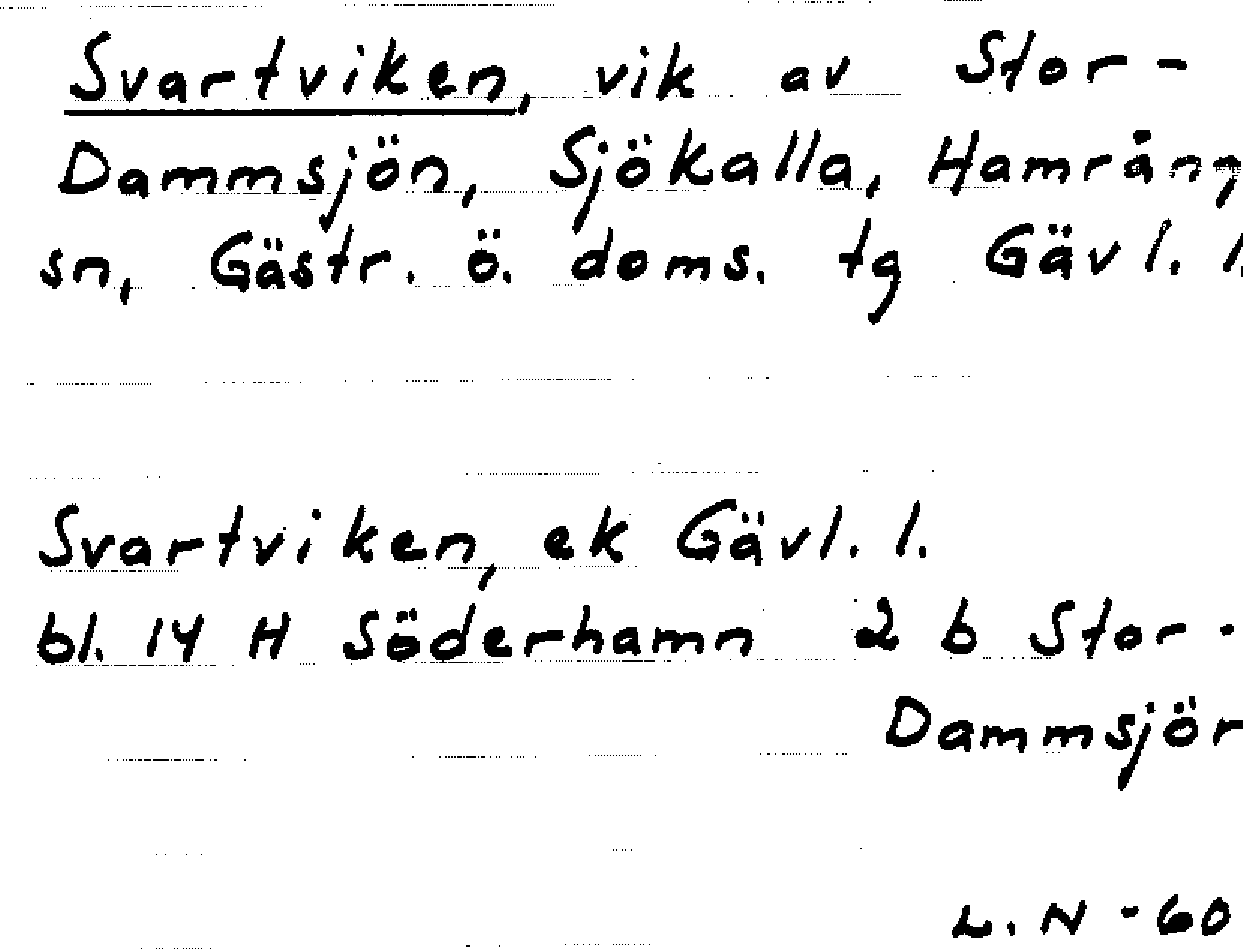 Svartviken, vik av Stor-
Dammsjön, Sjökalla, Hamrång
sn, Gästr. ö. doms. tg Gävl. l.
Svartviken, ek Gävl. l.
bl. 14 H Söderhamn 2 b Stor-
Dammsjön
L. N -60